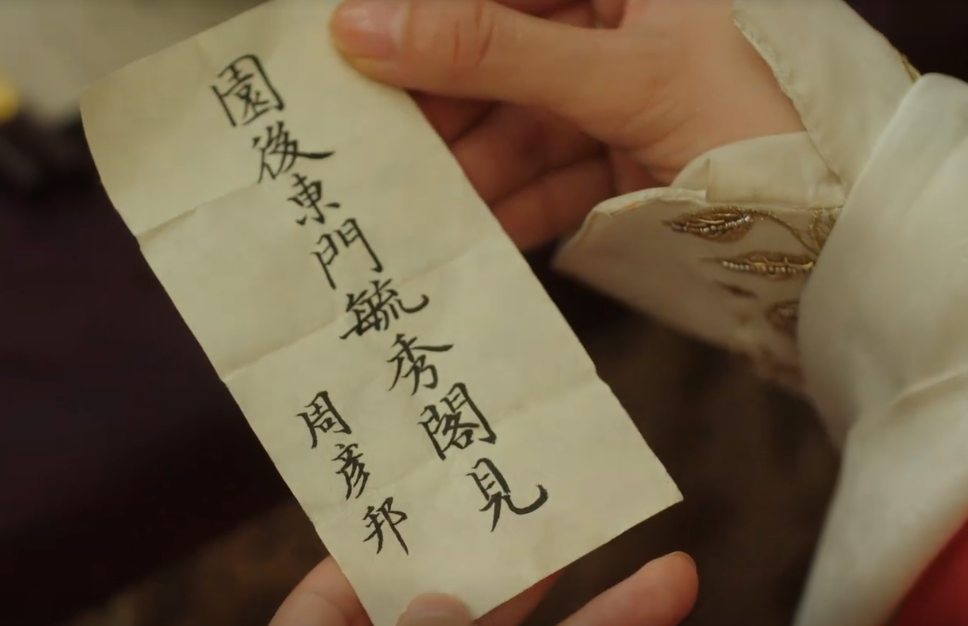 園後東門毓秀閣見
周彦邦